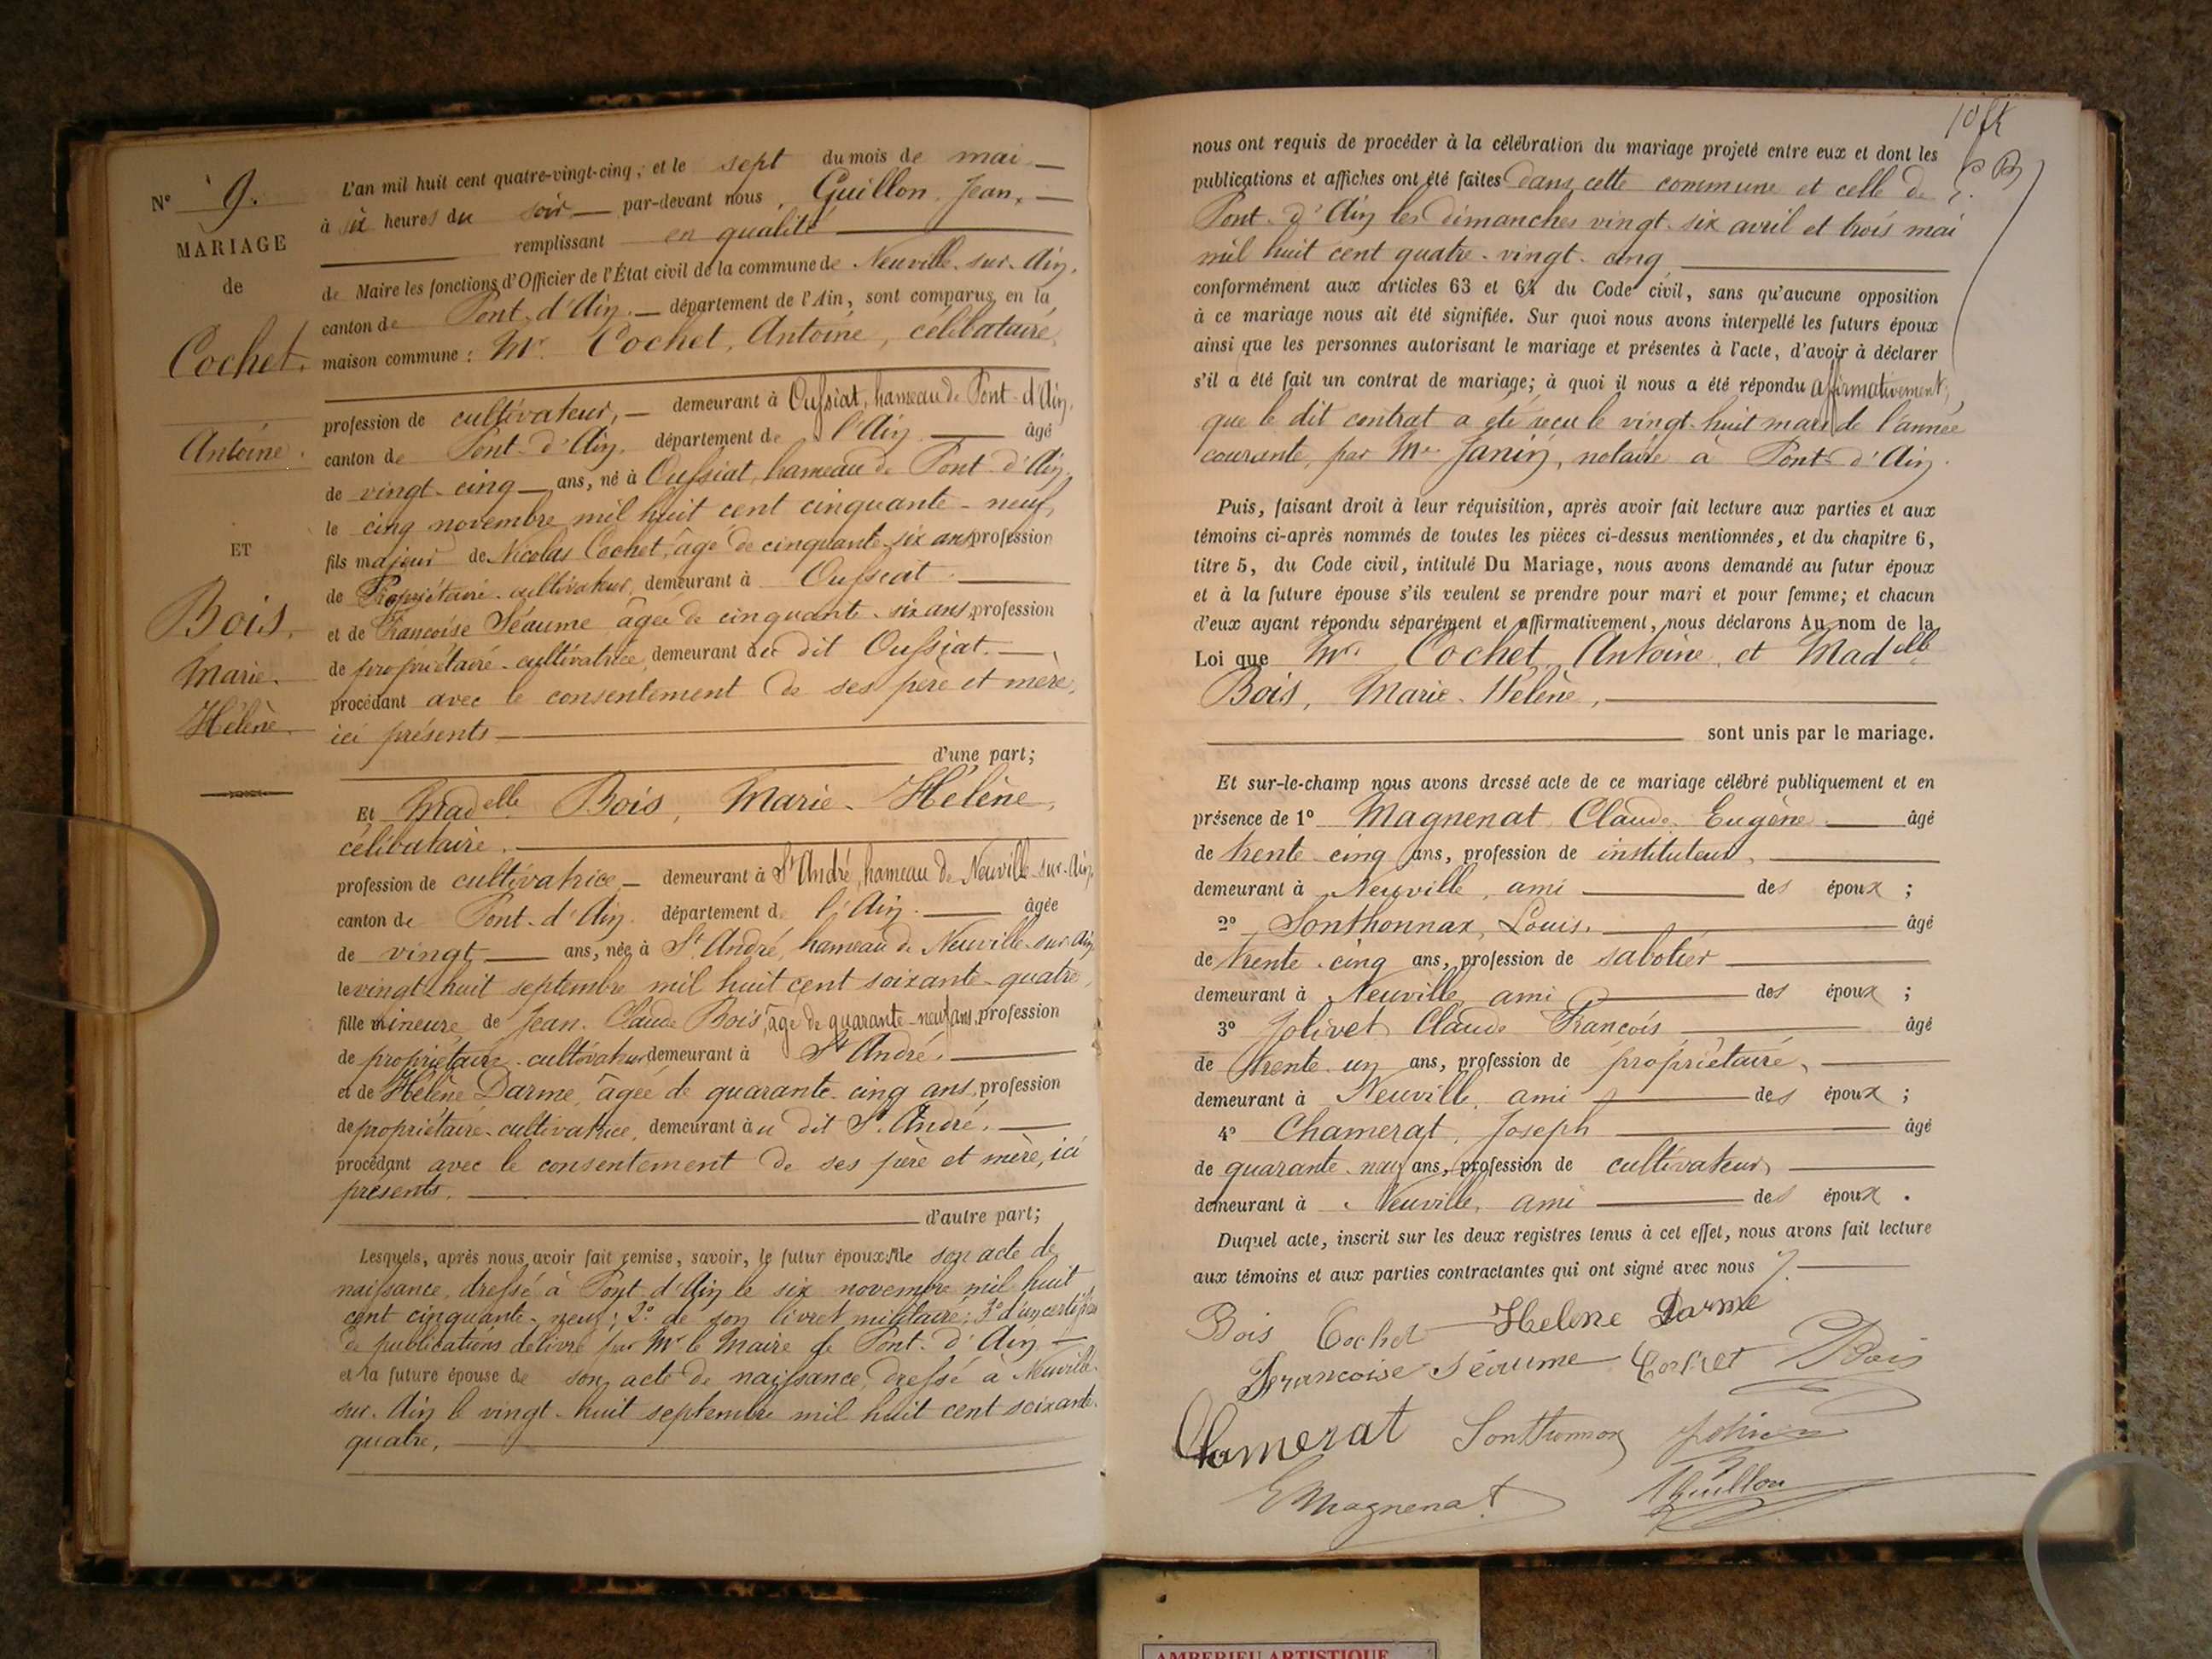 N° 9.
MARIAGE
de
Cochet.
Antoine.
ET
Bois,
Marie.
Hélène.
L'an mil huit cent quatre-vingt-cinq, et le sept du mois de mai
à six heures du soir par-devant nous, Guillon Jean,
remplissant en qualité
de Maire les fonctions d'Officier de l'État civil de la commune de Neuville-sur-Ain,
canton de Pont-d'Ain. département de l'Ain, sont comparus en la
maison commune : Mr Cochet, Antoine, célibataire,
profession de cultivateur, demeurant à Oussiat, hameau de Pont-d'Ain,
canton de Pont-d'Ain. département de l'Ain âgé
de vingt-cinq ans, né à Oussiat, hameau de Pont-d'Ain,
le cinq novembre mil huit cent cinquante-neuf,
fils majeur de Nicolas Cochet, âgé de cinquante-six ans, profession
de Propriétaire-cultivateur, demeurant à Oussiat
et de Françoise Séaume âgée de cinquante-six ans, profession
de propriétaire-cultivatrice, demeurant au dit Oussiat.
procédant avec le consentement de ses père et mère,
ici présents
d'une part;
Et Madelle Bois, Marie-Hélène,
célibataire,
profession de cultivatrice demeurant à St André, hameau de Neuville-sur-Ain,
canton de Pont-d'Ain. département de l'Ain. âgée
de vingt ans, née à St André, hameau de Neuville-sur-Ain
le vingt-huit septembre mil huit cent soixante-quatre,
fille mineure de Jean-Claude Bois, âgé de quarante-neuf ans, profession
de propriétaire-cultivateur demeurant à St André.
et de Hélène Darme, âgée de quarante-cinq ans, profession
de propriétaire-cultivatrice, demeurant au dit St André.
procédant avec le consentement de ses père et mère, ici
présents.
d'autre part;
Lesquels, après nous avoir fait remise, savoir, le futur époux: de son acte de
naissance, dressé à Pont-d'Ain le six novembre mil huit
cent cinquante-neuf; 2° de son livret militaire; 3° d'un certificat
de publications délivré par Mr le Maire de Pont-d'Ain
et la future épouse de son acte de naissance, dressé à Neuville-
sur-Ain le vingt-huit septembre mil huit cent soixante-
quatre,
nous ont requis de procéder à la célébration du mariage projeté entre eux et dont les
publications et affiches ont été faites dans cette commune et celle de
Pont-d'Ain les dimanches vingt-six avril et trois mai
mil huit cent quatre-vingt-cinq
conformément aux articles 63 et 64 du Code civil, sans qu'aucune opposition
à ce mariage nous ait été signifiée. Sur quoi nous avons interpellé les futurs époux
ainsi que les personnes autorisant le mariage et présentes à l'acte, d'avoir à déclarer
s'il a été fait un contrat de mariage; à quoi il nous a été répondu affirmativement,
que le dit contrat a été reçu le vingt-huit mars de l'année
courante, par Me Janin, notaire à Pont-d'Ain.
Puis, faisant droit à leur réquisition, après avoir fait lecture aux parties et aux
témoins ci-après nommés de toutes les pièces ci-dessus mentionnées, et du chapitre 6,
titre 5, du Code civil, intitulé Du Mariage, nous avons demandé au futur époux
et à la future épouse s'ils veulent se prendre pour mari et pour femme; et chacun
d'eux ayant répondu séparément et affirmativement, nous déclarons Au nom de la
Loi que Mr. Cochet Antoine, et Madelle
Bois, Marie-Hélène,
sont unis par le mariage.
Et sur-le-champ nous avons dressé acte de ce mariage célébré publiquement et en
présence de 1° Magnenat Claude Eugène âgé
de trente-cinq ans, profession de instituteur,
demeurant à Neuville, ami des époux ;
2° Sonthonnax, Louis. âgé
de trente-cinq ans, profession de sabotier
demeurant à Neuville, ami des époux ;
3° Jolivet Claude François âgé
de trente-un ans, profession de propriétaire,
demeurant à Neuville, ami des époux ;
4° Chamerat, Joseph âgé
de quarante-neuf ans, profession de cultivateur
demeurant à Neuville, ami des époux.
Duquel acte, inscrit sur les deux registres tenus à cet effet, nous avons fait lecture
aux témoins et aux parties contractantes qui ont signé avec nous
Bois Cochet Helene Darme
Francoise Séaume Cochet Bois
Chamerat Sonthonnax Jolivet
E Magnenat Guillon
AMBERIEU ARTISTIQUE